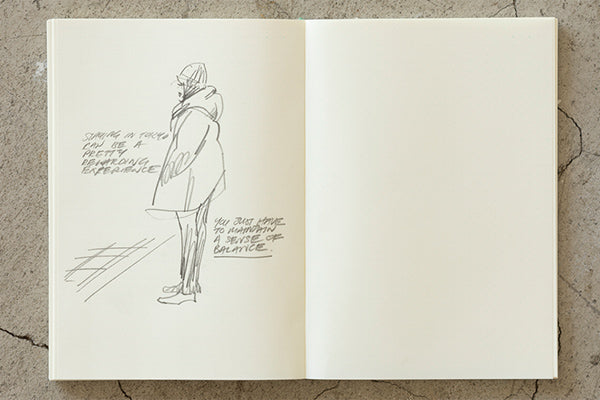 STAYING IN TOKYO
CAN BE A
PRETTY
REWARDING
EXPERIENCE
YOU JUST HAVE
TO MAINTAIN
A SENSE OF
BALANCE.